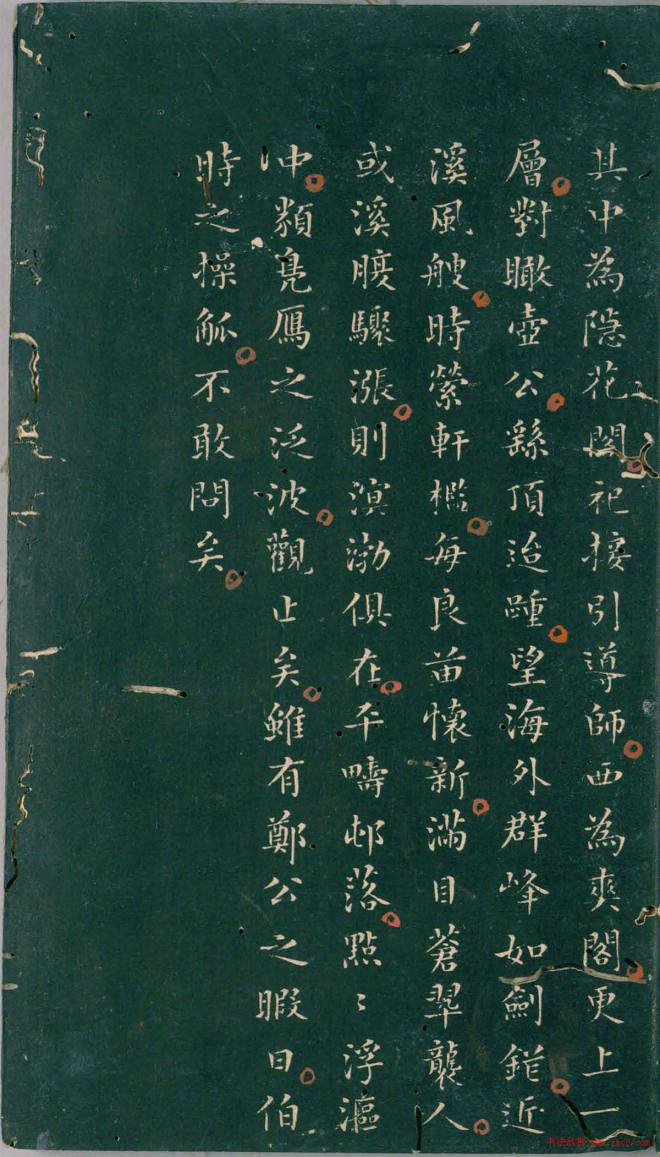 其中為隱花閣祀接引導師西為爽閣更上一
層對瞰壺公縣頂迨踵望海外群峰如劍錯近
溪風艘時縈軒檻每良苗懷新滿目蒼翠襲人
或溪腹驟漲則溟渤俱在平疇邨落點〻浮漚
冲類鳧鴈之泛波觀止矣雖有鄭公之暇日伯
時之操觚不敢問矣